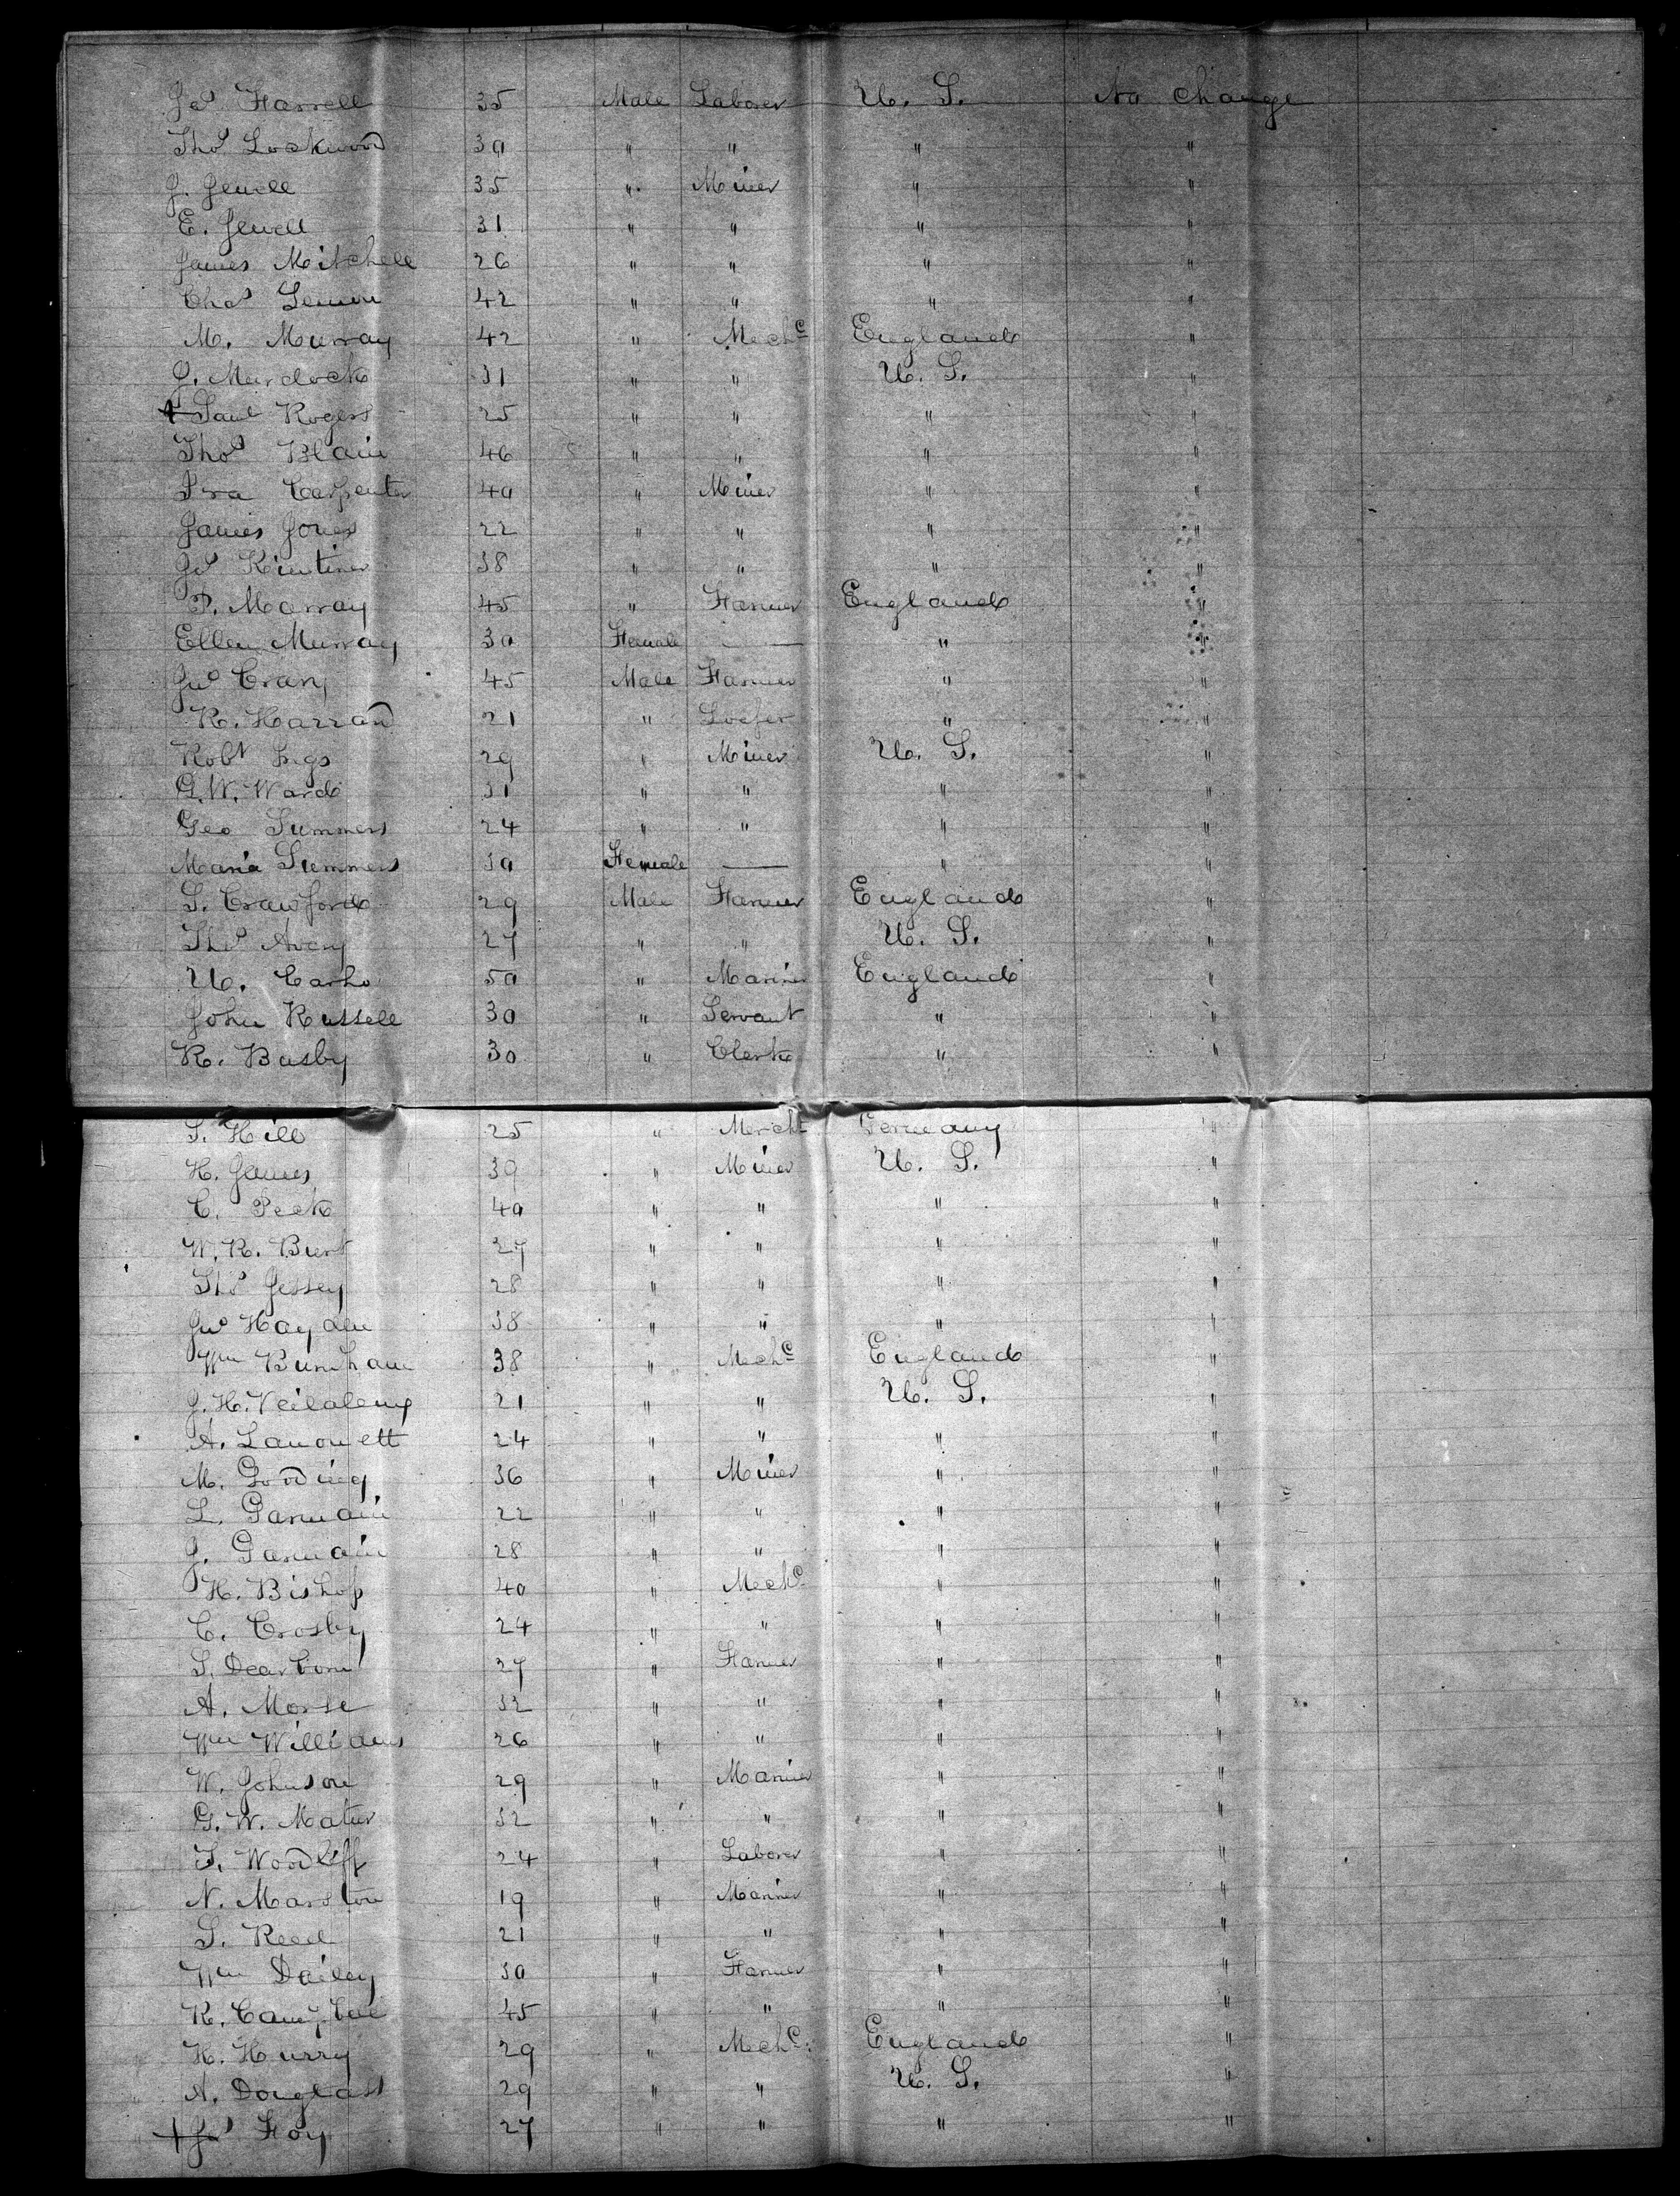 Jas Farrell 35 Male Laborer U. S. No Change
Thos Lockwood 30 " " " "
J. Jewell 35 " Miner " "
E. Jewell 31 " " " "
James Mitchell 26 " " " "
Chas Lemon 42 " " " "
M. Murray 42 " Mechc England "
J. Murdock 31 " " U. S. "
Saml Rogers 25 " " " "
Thos Blain 46 " " " "
Ira Carpenter 40 " Miner " "
James Jones 22 " " " "
Jno 38 " " " "
P. Murray 45 " Farmer England "
Ellen Murray 30 Female — " "
Jno Crary 45 Male Farmer " "
R. Harrand 21 " Loafer " "
Robt Ings 29 " Miner U. S. "
G. W. Ward 31 " " " "
Geo Summers 24 " " " "
Maria Summers 30 Female — " "
S. Crawford 29 Male Farmer England "
Thos Avery 27 " " U. S. "
U. 50 " Mariner England "
John Russell 30 " Servant " "
R. Busby 30 " Clerk " "
S. Hill 25 " Mercht Germany "
H. James 30 " Miner U. S. "
C. Peck 40 " " " "
W. R. Burt 27 " " " "
Thos Jessey 28 " " " "
Jno Hayden 38 " " " "
Wm Burnham 38 " Mechc England "
J. H. 21 " " U. S. "
A. 24 " " " "
M. Gooding 36 " Miner " "
L. Garmain 22 " " " "
J. Garmain 28 " " " "
H. Bishop 40 " Mechc " "
C. Crosby 24 " " " "
S. Dearborn 27 " Farmer " "
A. Morse 32 " " " "
Wm Williams 26 " " " "
W. Johnson 29 " Mariner " "
G. W. 32 " " " "
T. Woodliff 24 " Laborer " "
N. Marston 19 " Mariner " "
S. Reed 21 " " " "
Wm Dailey 30 " Farmer " "
R. Campbell 45 " " " "
H. Hurry 29 " Mechc England "
A. Douglass 29 " " U. S. "
Foy 27 " " " "